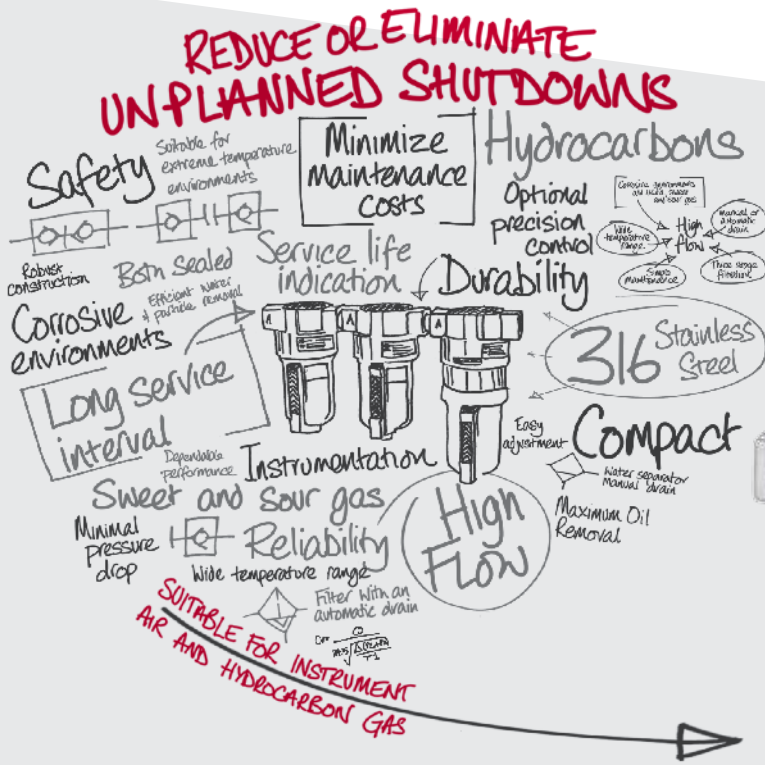 REDUCE OR ELIMINATE
UNPLANNED SHUTDOWNS
Safety
Suitable for
extreme temperature
environments
Minimize
Maintenance
Costs
Hydrocarbons
Optional
precision
control
Corrosive environments
and sour gas
High
flow
Manual or
automatic
drain
Wide
temperature
range
Simple
maintenance
Robust
construction
Both Sealed
Service life
indication
Durability
Corrosive
environments
Efficient water
& particle removal
A
A
A
316
Stainless
Steel
Long service
interval
Dependable
performance
Instrumentation
Easy
adjustment
Compact
Water separator
Manual drain
Sweet and sour gas
High
FLOW
Maximum Oil
Removal
Minimal
pressure
drop
Reliability
Wide temperature range
Filter with an
automatic drain
SUITABLE FOR INSTRUMENT
AIR AND HYDROCARBON GAS